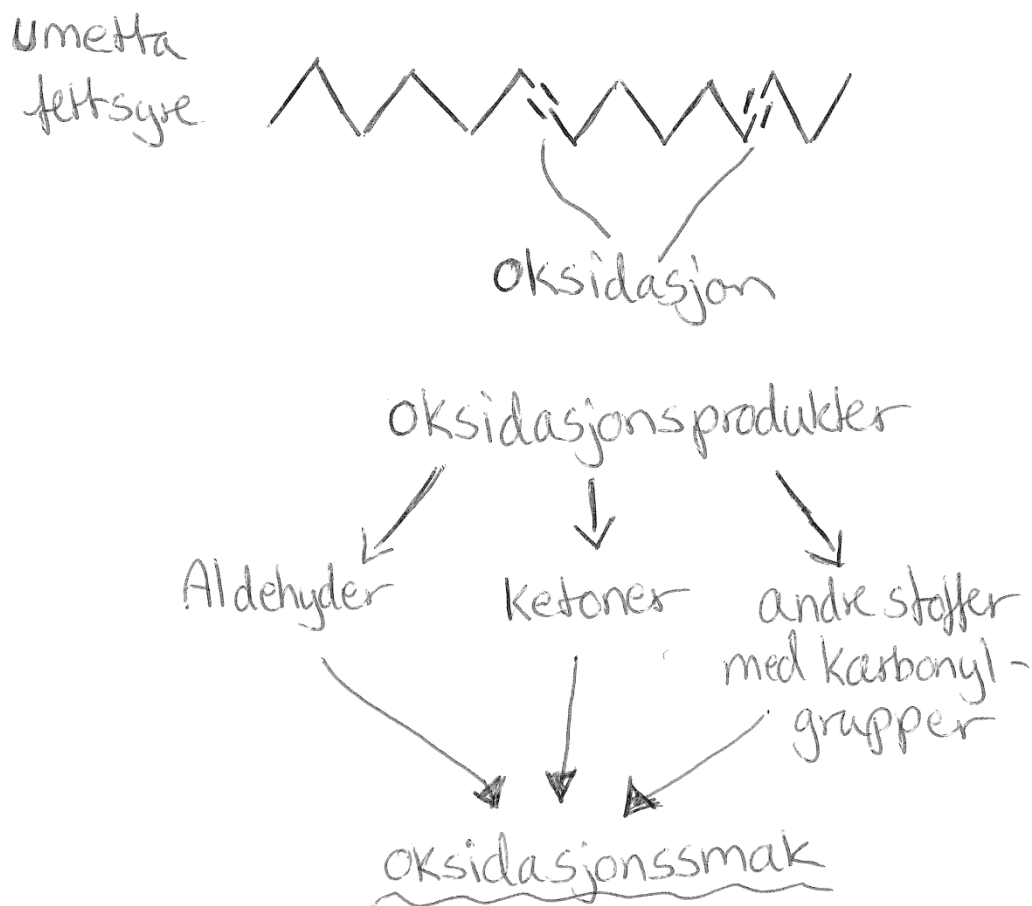 umetta
fettsyre
oksidasjon
oksidasjonsprodukter
Aldehyder
ketoner
andre stoffer
med karbonyl-
grupper
oksidasjonssmak